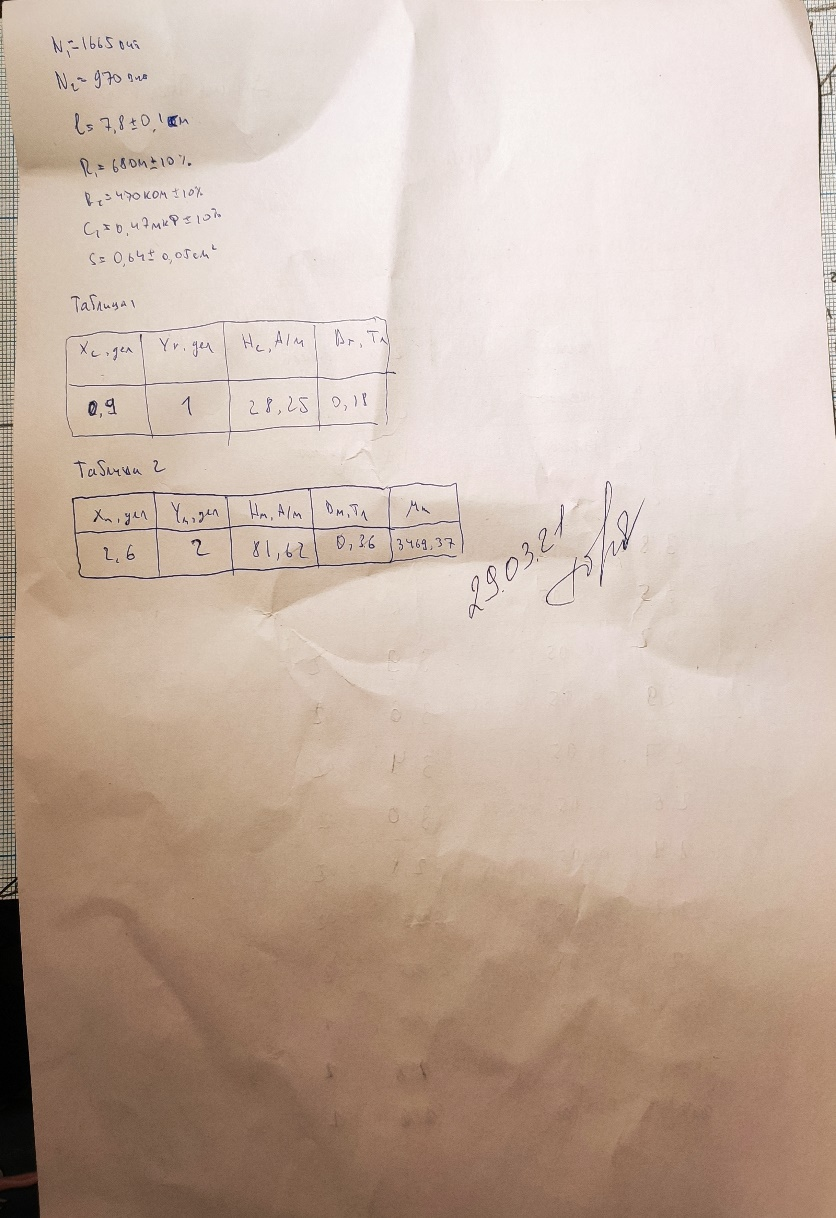 N₁=1665 вит
N₂=970 вит
l=7,8±0,1см
R₁=68Ом±10%
R₂=470кОм±10%
C₁=0,47мкФ±10%
S=0,64±0,05см²
Таблица1
Xc, дел Yr, дел Hc, А/м Br, Тл
0,9 1 28,25 0,18
Таблица 2
Xm, дел Ym, дел Hm, А/м Bm, Тл μm
2,6 2 81,62 0,36 3469,37
29.03.21